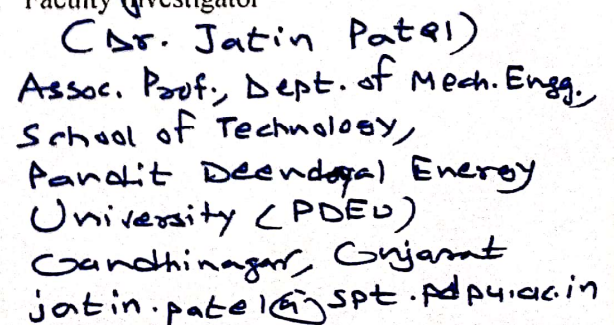 Faculty Investigator
(Dr. Jatin Patel)
Assoc. Prof., Dept. of Mech. Engg.,
School of Technology,
Pandit Deendayal Energy
University (PDEU)
Gandhinagar, Gujarat
jatin.patel@spt.pdpu.ac.in